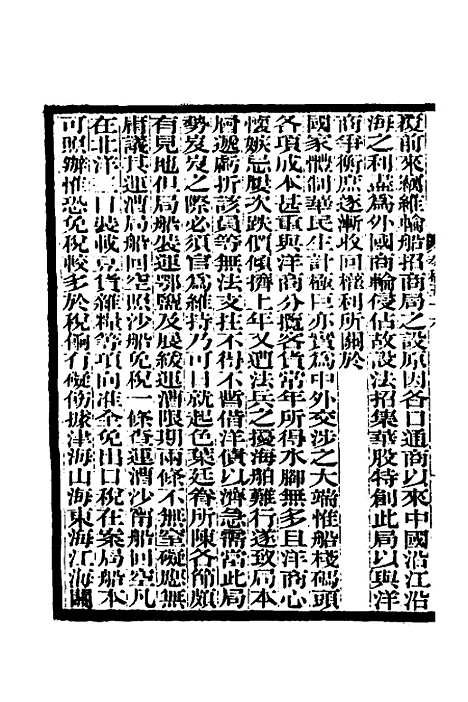 覆前來竊維輪船招商局之設原因各口通商以來中國沿江沿
海之利盡爲外國商輪侵佔故設法招集華股特創此局以與洋
商爭衡庶逐漸收回權利所關於
國家體制華民生計極巨亦實爲中外交涉之大端惟船棧碼頭
各項成本甚重與洋商分攬各貨常年所得水腳無多且洋商心
懷嫉忌屢次跌價傾擠上年又遭法兵之擾海舶難行遂致局本
層遞虧折該員等無法支拄不得不暫借洋債以濟急需當此局
勢岌岌之際必須官爲維持乃可日就起色葉廷眷所陳各節頗
有見地但局船裝運鄂鹽及展緩運漕限期兩條不無窒礙應無
庸議其運漕局船回空照沙船免稅一條查運漕沙甯船回空凡
在北洋三口裝載豆貨雜糧等項向准全免出口稅在案局船本
可照辦惟恐免稅較多於稅餉有礙仿據津海山海東海江海關